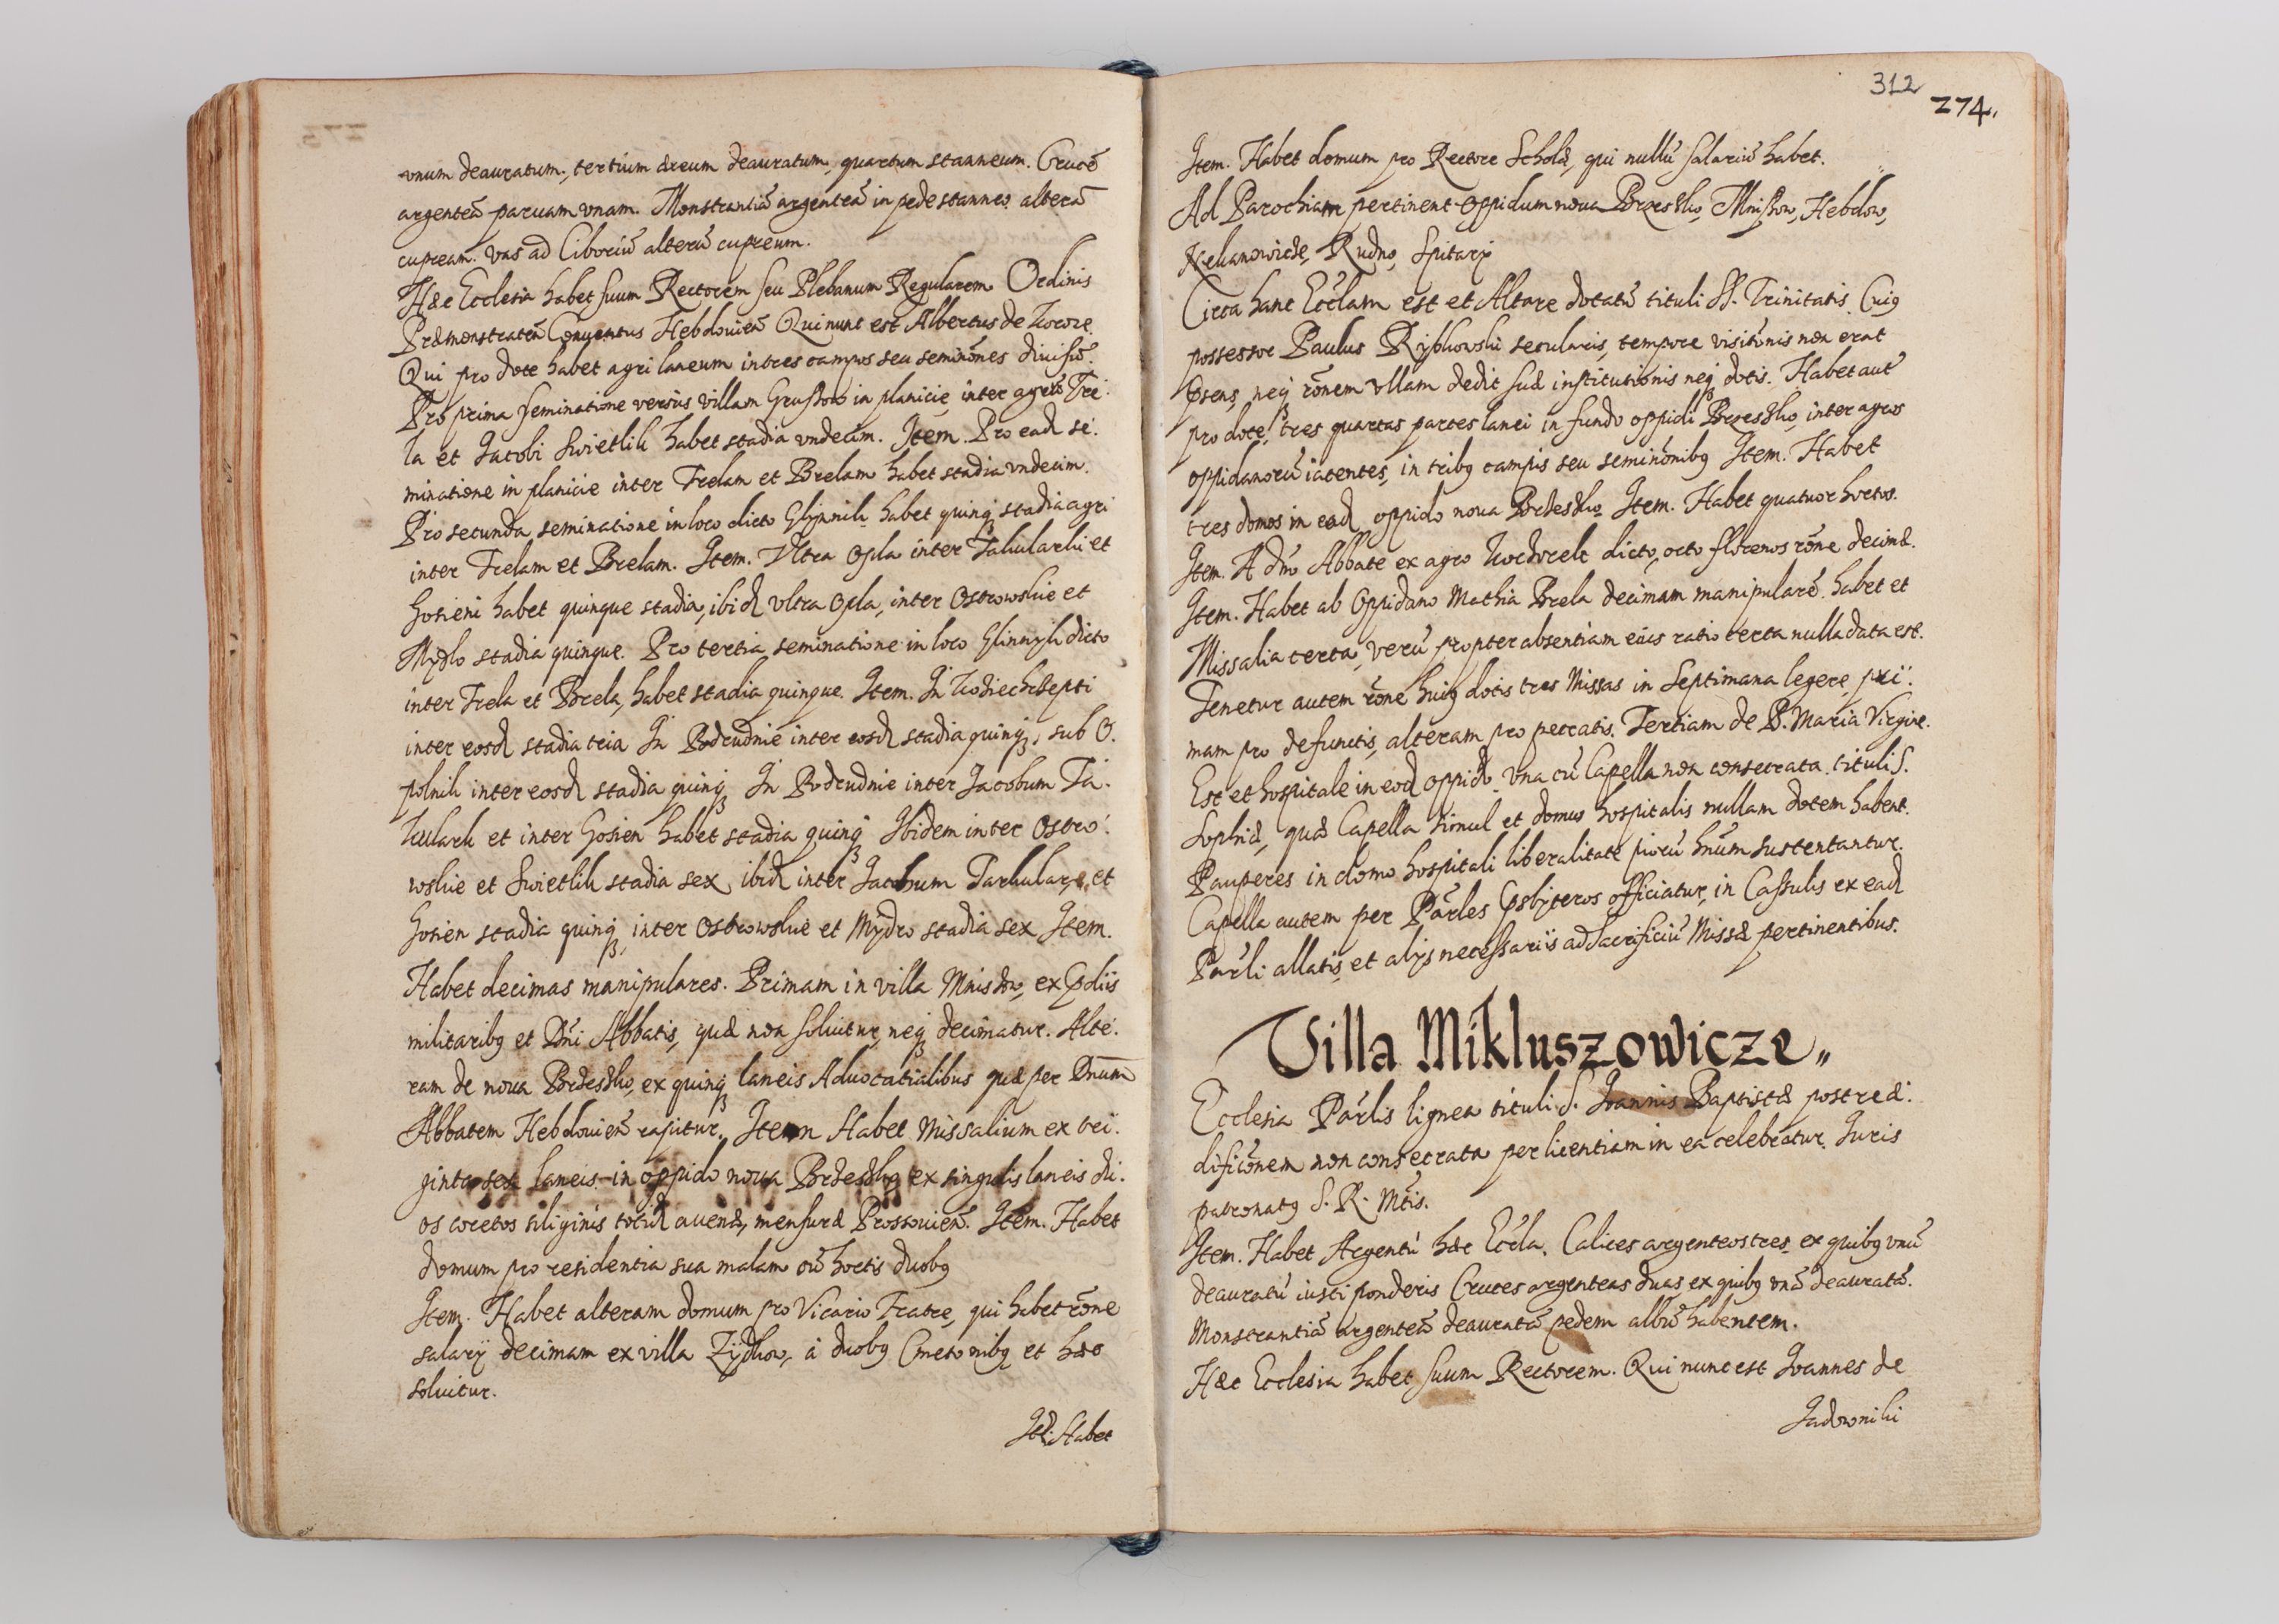 vnum deauratum, tertium æreum deauratum, quartum stanneum. Crucē
argenteā paruam vnam. Monstrantiā argenteā in pede stanneo. alterā
cupream. vas ad Ciboriū alterū cupreum.
Hæc Ecclesia habet suum Rectorem seu Plebanum Regularem Ordinis
Præmonstrateñ Conuentus Hebdouieñ Qui nunc est Albertus de
Qui pro dote habet agri laneum in tres campos seu seminōnes diuisū.
Pro prima seminatione versus villam Grussow in planicie, inter agros Tre:
la et Jacobi Swietlik habet stadia vndecim. Item. Pro ead se:
minatione in planicie inter Trelam et Brelam habet stadia vndecim.
Pro secunda seminatione in loco dicto Glynnik habet quinq stadia agri
inter Trelam et Brelam. Item. Vltra Opla inter et
Gosieni habet quinque stadia, ibid vltra Opla, inter Ostrowskie et
Mydlo stadia quinque. Pro tertia seminatione in loco Glinnyk dicto
inter Trela et Brela, habet stadia quinque. Item. In
inter eosd stadia tria In Podrudnie inter eosd stadia quinq, sub O.
polnik inter eosd stadia quinq In Podrudnie inter Jacobum Ta:
et inter Gosien habet stadia quinq Ibidem inter Ostro:
wskie et Swietlik stadia sex, ibid inter Jacobum et
Gosien stadia quinq, inter Ostrowskie et Mydro stadia sex Item.
Habet decimas manipulares. Primam in villa Mniszow, ex
militaribq et Dñi Abbatis, quæ non soluitur, neq decimatur. Alte:
ram de noua Brzeszko, ex quinq laneis Aduocatialibus quæ per Dnum
Abbatem Hebdouieñ rapitur. Item Habet Missalium ex tri:
ginta sex laneis in oppido noua Brzeszko ex singulis laneis du:
os coretos siliginis totid auenæ, mensuræ Prossouieñ. Item. Habet
domum pro residentia sua malam cū hortis duobq
Item. Habet alteram domum pro Vicario Fratre, qui habet rōne
salarÿ decimam ex villa Zÿdkow, à duobq Cmetonibq et hæc
soluitur.
It: Habet
312
274.
Item. Habet domum pro Rectore Scholæ, qui nullū salariū habet.
Ad Parochiam pertinent Oppidum noua Brzeszko, Mnissow, Hebdow,
Rudno,
Circa hanc Ecclam est et Altare dotatū tituli SS. Trinitatis. Cuiq
possessor Paulus secularis, tempore visitōnis non erat
psens, neq rōnem vllam dedit suæ institutionis neq dotis. Habet aut
pro dote, tres quartas partes lanei in fundo oppidi Brzeszko, inter agros
oppidanorū iacentes, in tribq campis seu seminōnibq Item. Habet
tres domos in eod oppido noua Brzeszko Item. Habet quatuor hortos.
Item. A dño Abbate ex agro dicto, octo florenos rōne decimæ.
Item. Habet ab Oppidano Mathia Brela decimam manipularē. habet et
Missalia certa, verū propter absentiam eius ratio certa nulla data est.
Tenetur autem rōne huiq dotis tres Missas in Septimana legere, pri:
mam pro defunctis, alteram pro peccatis. Tertiam de B. Maria Virgine.
Est et hospitale in eod oppido vna cū Capella non consecrata tituli S.
Sophiæ, quæ Capella simul et domus hospitalis nullam dotem habent.
Pauperes in domo hospitali liberalitate piorū hñum sustentantur.
Capella autem per Pārles Psbyteros officiatur, in Cassulis ex ead
Pārli allatis, et alijs necessarijs ad Sacrificiū Missæ pertinentibus.
Villa Mikluszowicze
Ecclesia Pārlis lignea tituli S. Joannis Baptistæ post reæ:
dificōnem non consecrata per licentiam in ea celebratur. Juris
patronatq S. R. Mtis.
Item. Habet Argenti hæc Eccla. Calices argenteos tres, ex quibq vnū
deauratū iusti ponderis Cruces argenteas duas ex quibq vnā deauratā.
Monstrantiā argenteā deauratā pedem albū habentem.
Hæc Ecclesia habet suum Rectorem. Qui nunc est Joannes de
Jadowniki